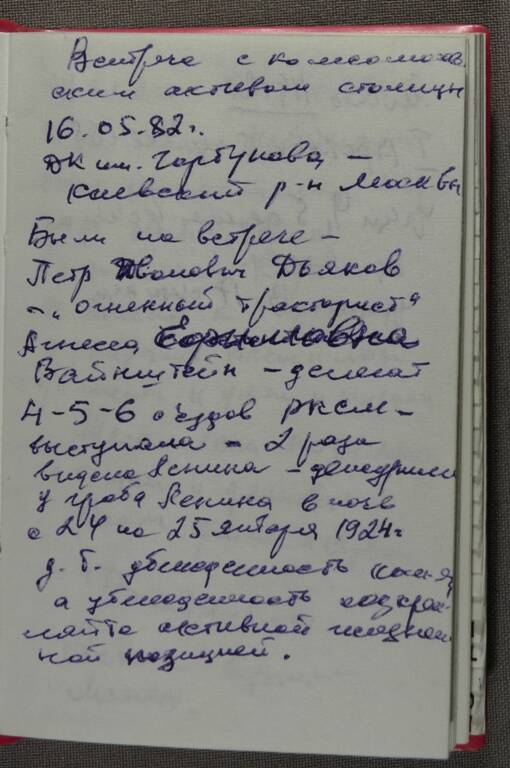 Встреча с комсомоль
ским активом столицы
16.05.82г.
ДК им. Горбунова, –
Киевский р-н Москвы
Были на встрече –
Петр Иванович Дьяков
– „огненный тракторист"
Агнесса
Вайнштейн – делегат
4-5-6 съездов РКСМ –
выступала – 2 раза
видела Ленина – дежурила
у гроба Ленина в ночь
с 24 на 25 января 1924г
д. б. убежденность
а убежденность подкреп-
ляйте активной жизнен
ной позицией.